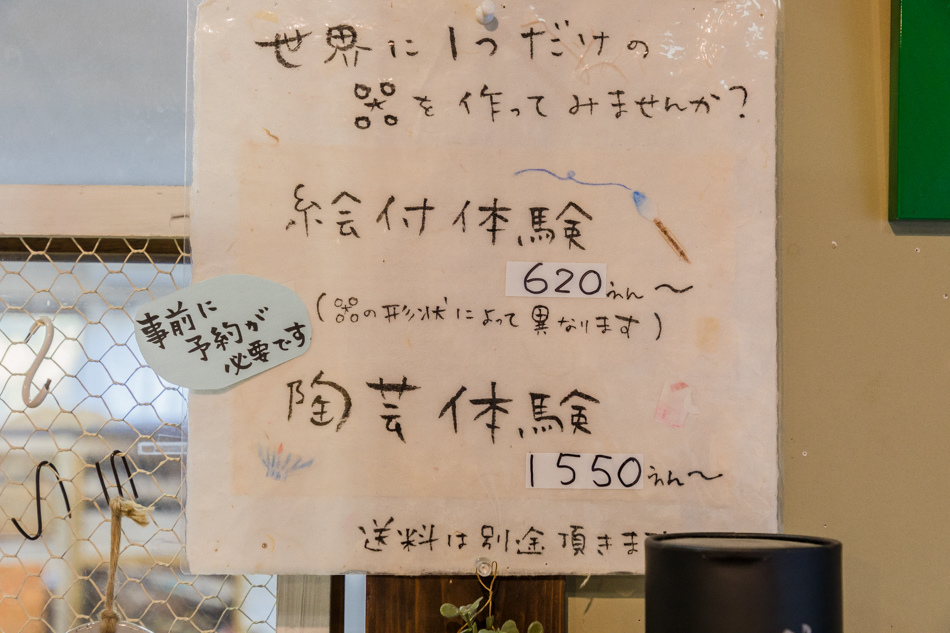 世界に1つだけの
器を作ってみませんか?
絵付体験
620えん〜
(器の形状によって異なります)
事前に
予約が
必要です
陶芸体験
1550えん〜
送料は別途頂きま